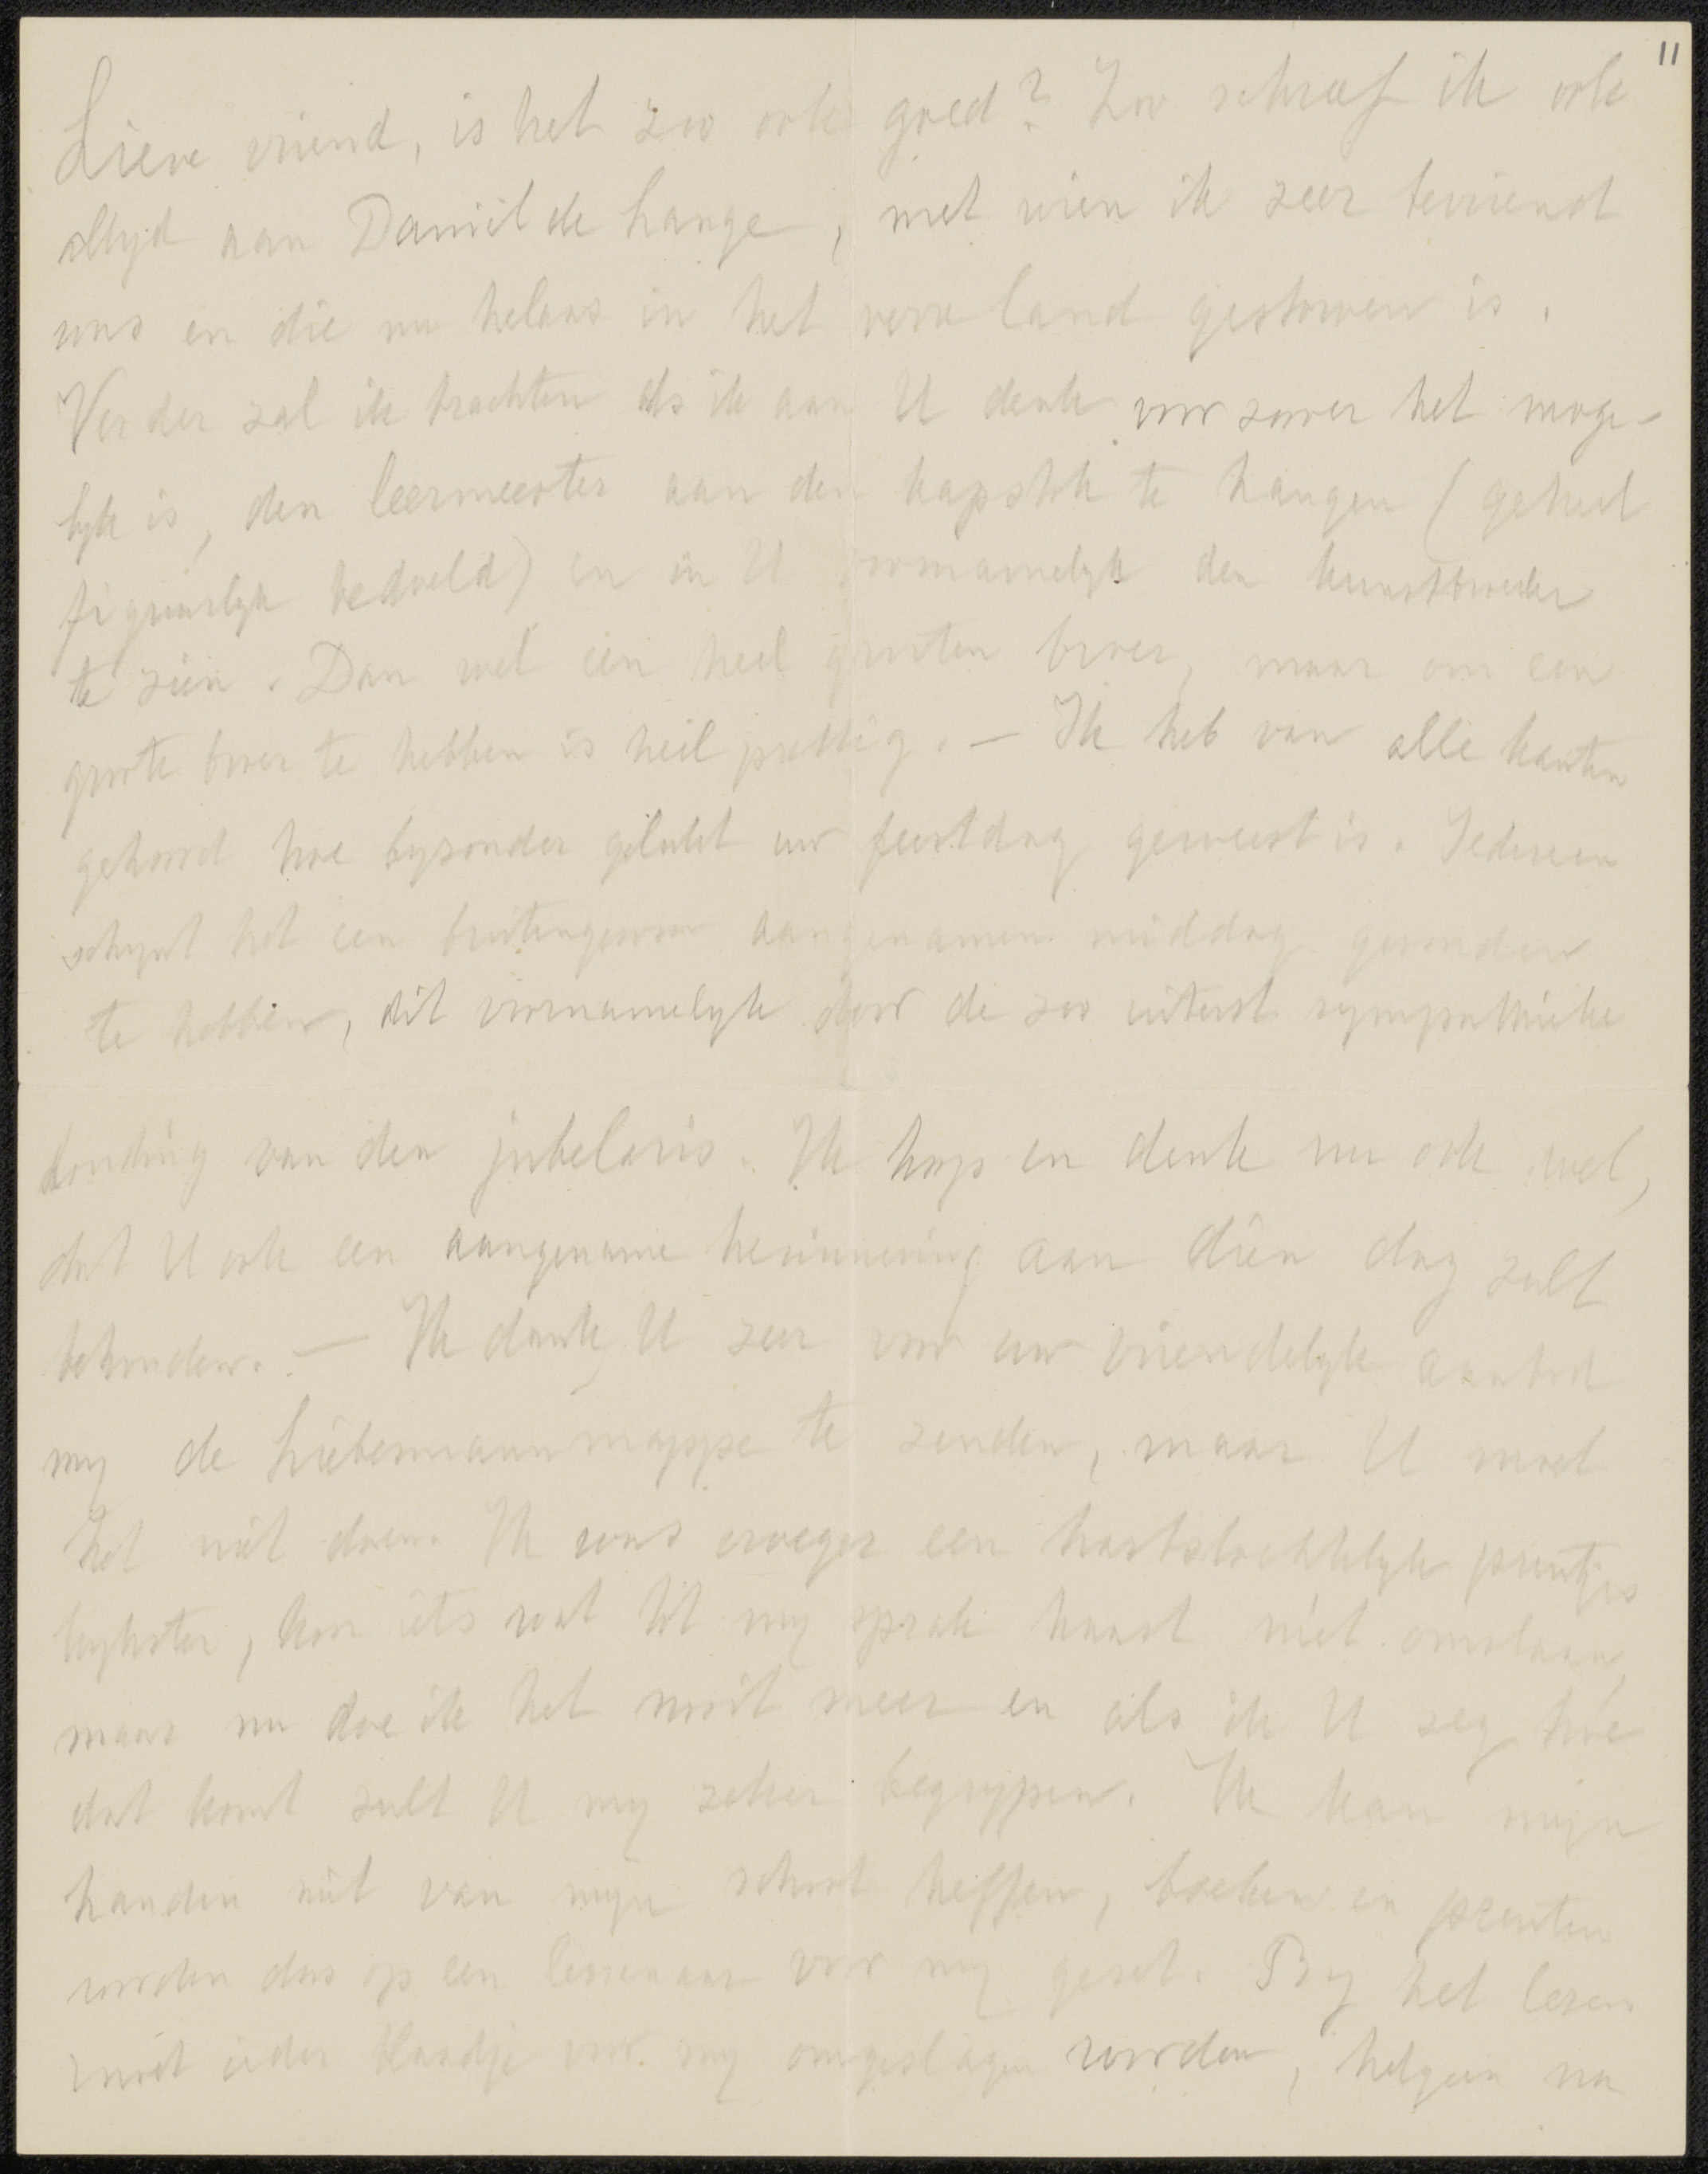 11
Lieve vriend, is het zoo ook goed? Zoo schreef ik ook
altijd aan Daniël de Lange, met wien ik zeer bevriend
was en die nu helaas in het verre land gestorven is.
Verder zal ik trachten als ik aan U denk voor zoover het moge-
lijk is, den leermeester aan den kapstok te hangen (geheel
figuurlijk bedoeld) en in U voornamelijk den kunstbroeder
te zien. Dan wel een heel grooten broer, maar om een
groote broer te hebben is heel prettig. — Ik heb van alle kanten
gehoord hoe byzonder gelukt uw feestdag geweest is. Iedereen
schijnt het een buitengewoon aangenamen middag gevonden
te hebben, dit voornamelijk door de zoo uiterst sympathieke
houding van den jubelaris. Ik hoop en denk nu ook wel,
dat U ook een aangename herinnering aan dien dag zult
behouden. — Ik dank U zeer voor uw vriendelijk aanbod
mij de Liebermannmappe te zenden, maar U moet
het niet doen. Ik was vroeger een hartstochtelijk prentjes
kijkster, kon iets wat tot mij sprak haast niet omslaan,
maar nu doe ik het nooit meer en als ik U zeg hoe
dat komt zult U mij zeker begrijpen. Ik kan mijn
handen niet van mijn schoot heffen, boeken en prenten
worden dus op een lessenaar voor mij gezet. Bij het lezen
moet ieder blaadje voor mij omgeslagen worden, hetgeen na